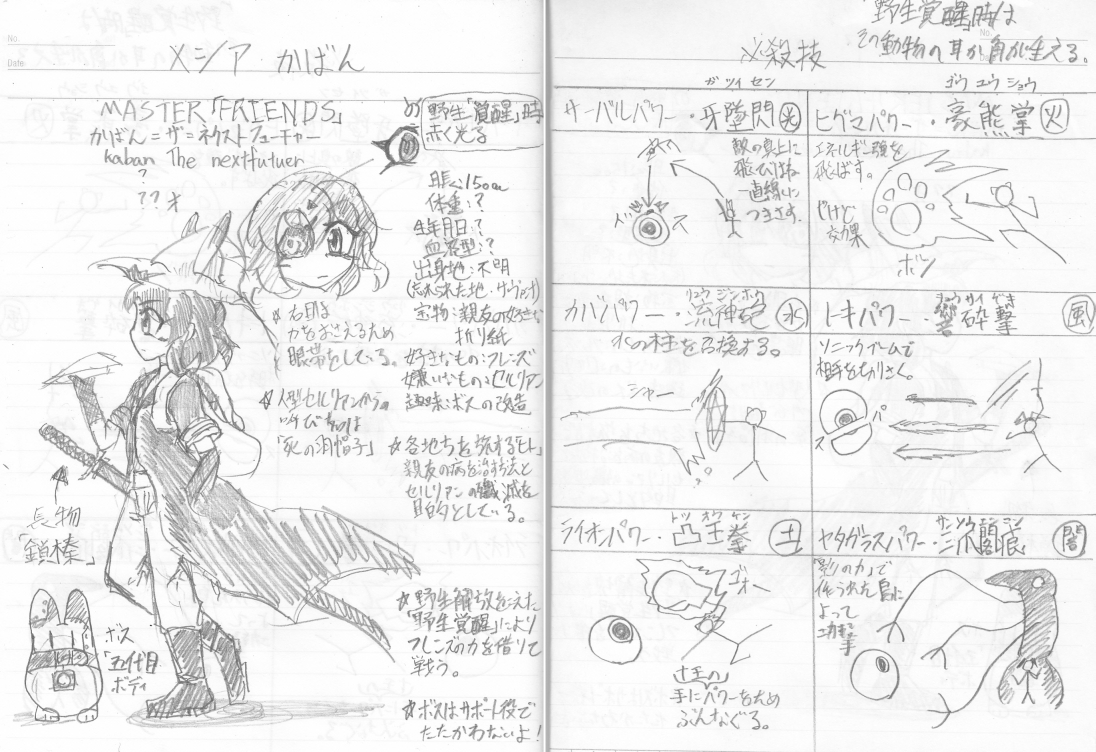 No.
Date
メシア かばん
MASTER「FRIENDS」
かばん=ザ=ネクストフューチャー
kaban The nextfutuer
?
??才
め
野生「覚醒」時
赤く光る
身長:150cm
体重:?
生年月日:?
血液型:?
出身地:不明
宝物:親友の好きな
折り紙
好きなもの:フレンズ
嫌いなもの:セルリアン
趣味:ボスの改造
☆右目は
力をおさえるため
眼帯をしている。
☆人型セルリアンからの
呼び名は
「死の羽帽子」
☆各地を旅するヒト
親友の病を治す方法と
セルリアンの殲滅を
目的としている。
長物
ボス
「五代目
ボディ
☆野生解放をこえた
「野生覚醒」により
フレンズの力を借りて
戦う。
☆ボスはサポート役で
たたかわないよ!
「野生覚醒」時は
No.
その動物の耳か角が生える。
必殺技
ガツイセン
サーバルパワー・牙墜閃 光
敵の真上に
飛びはね
一直線に
つきさす。
ズ ズ
ゴウユウショウ
ヒグマパワー・豪熊掌 火
エネルギー弾を
飛ばす。
やけど
効果
ボン
リュウジンホウ
カバパワー・流神砲 水
水の柱を召換する。
シャー
キョウサイゲキ
トキパワー・響砕撃 風
ソニックブームで
相手をちりさく。
スパ
トツオウケン
ライオンパワー・凸王拳 土
ゴォー
手にパワーをため
ぶんなぐる。
サンソウ
ヤタガラスパワー・三爪 闇
「影の力」で
作られた鳥に
よって
攻撃